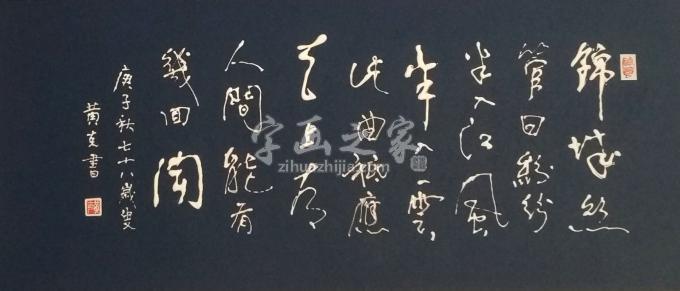 錦城絲
管日紛紛
半入江風
半入雲
此曲祇應
天上有
人間能有
幾回聞
庚子秋七十八歲叟
黄克書
字画之家
zihuazhijia.com